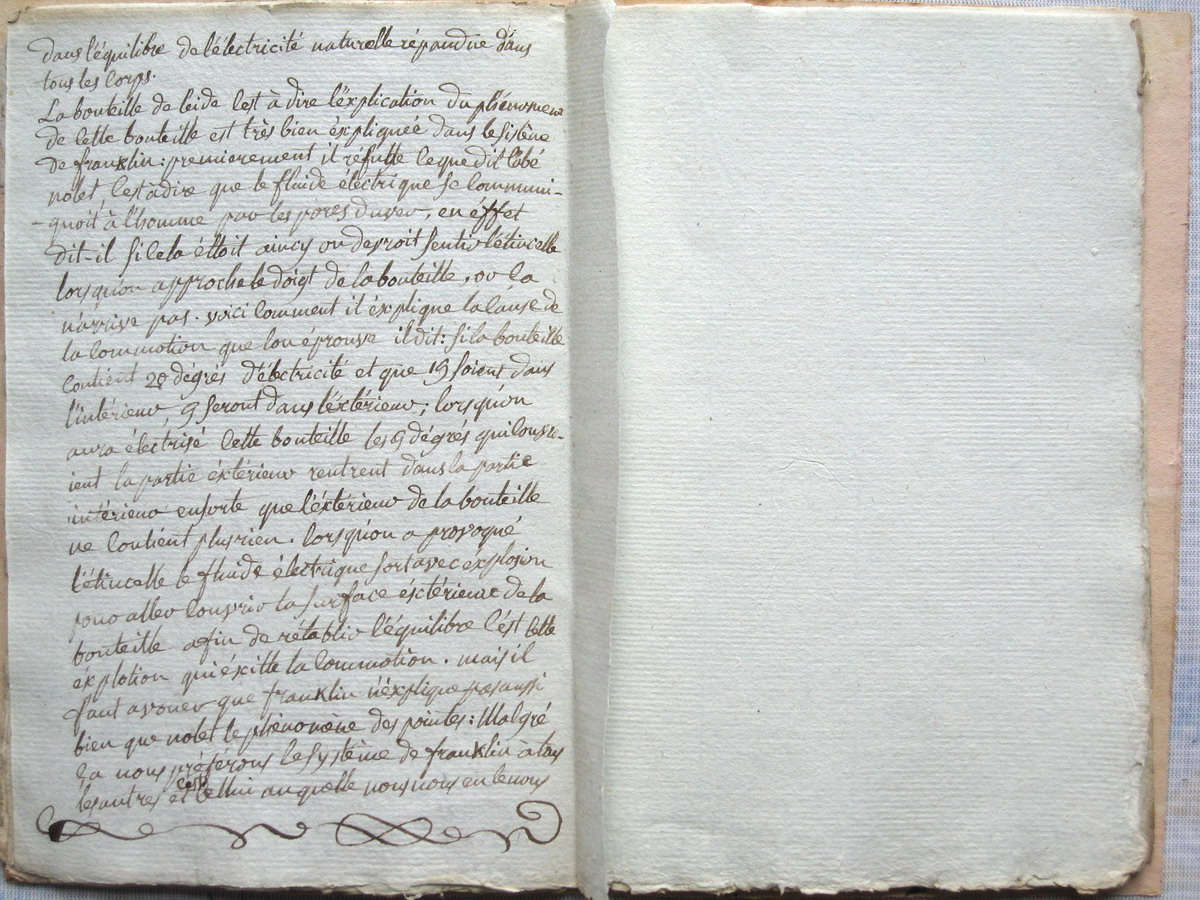 dans l'équilibre de l'électricité naturelle répandüe dans
tous les corps.
La bouteille de leide c'est à dire l'éxplication du phénomene
de cette bouteille est très bien éxpliqueé dans le sistême
de franklin : premierement il réfutte ce que dit l'abé
nolet, c'est à dire que le fluide électrique se communi-
-quoit à l'homme par les pores du ver, en éffet
dit-il si cela éttoit aincy on devroit sentir l'étincelle
lorsqu'on approche le doigt de la bouteille, or ca
n'arrive pas. voici comment il éxplique la cause de
la commotion que l'on éprouve il dit : si la bouteille
contient 20 dégrés d'électricité et que 19 soient dans
l'intérieur, 9 seront dans l'éxtérieur ; lorsqu'on
aura électrisé cette bouteille les 9 dégrés qui couvr-
ient la partie éxtérieur rentrent dans la partie
intérieur ensorte que l'éxterieur de la bouteille
ne contient plus rien. lorsqu'on a provoqué
l'étincelle le fluide électrique sort avec éxplosion
pour aller couvrir la surface éxtérieure de la
bouteille afin de rétablir l'équilibre c'est cette
éxplotion qui éxcitte la commotion. mais il
faut avouer que franklin n'éxplique pas aussi
bien que nolet le phénomene des pointes : Malgré
ca nous préférons le systême de franklin à tous
les autres et c'est cellui au quelle nous nous en tenons